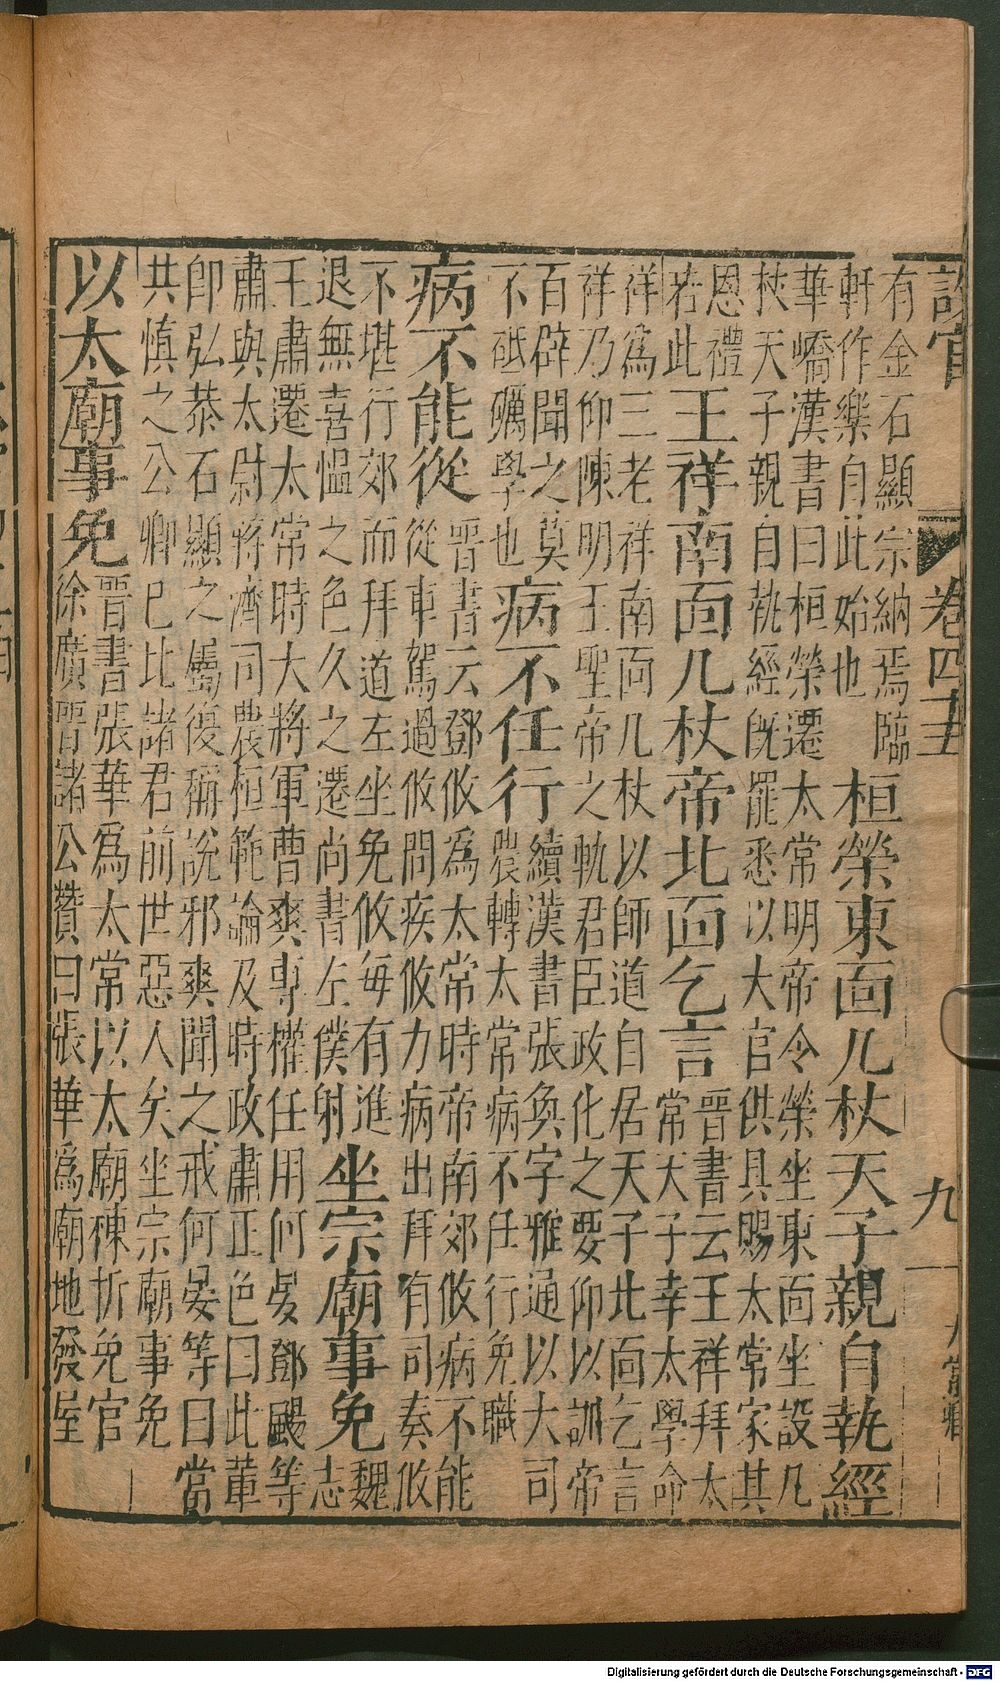 設官 卷四十五 九 太常卿
有金石顯宗納焉臨
軒作樂自此始也
桓榮東面几杖天子親自執經
華嶠漢書曰桓榮遷太常明帝令榮坐東面坐設几
杖天子親自執經既罷悉以大官供具賜太常家其
恩禮
若此
王祥南面几杖帝北面乞言
晉書云王祥拜太
常天子幸太學命
祥爲三老祥南面几杖以師道自居天子北面乞言
祥乃仰陳明王聖帝之軌君臣政化之要仰以訓帝
百辟聞之莫
不砥礪學也
病不任行
續漢書張奐字雅通以大司
農轉太常病不任行免職
病不能從
晉書云鄧攸爲太常時帝南郊攸病不能
從車駕過攸問疾攸力病出拜有司奏攸
不堪行郊而拜道左坐免攸每有進
退無喜慍之色久之遷尚書左僕射
坐宗廟事免
魏
志
王肅遷太常時大將軍曹爽專權任用何晏鄧颺等
肅與太尉蔣濟司農桓範論及時政肅正色曰此輩
卽弘恭石顯之屬復稱說邪爽聞之戒何晏等曰當
共慎之公卿已比諸君前世惡人矣坐宗廟事免
以太廟事免
晉書張華爲太常以太廟棟折免官
徐廣晉諸公贊曰張華爲廟地發屋
Digitalisierung gefördert durch die Deutsche Forschungsgemeinschaft - DFG